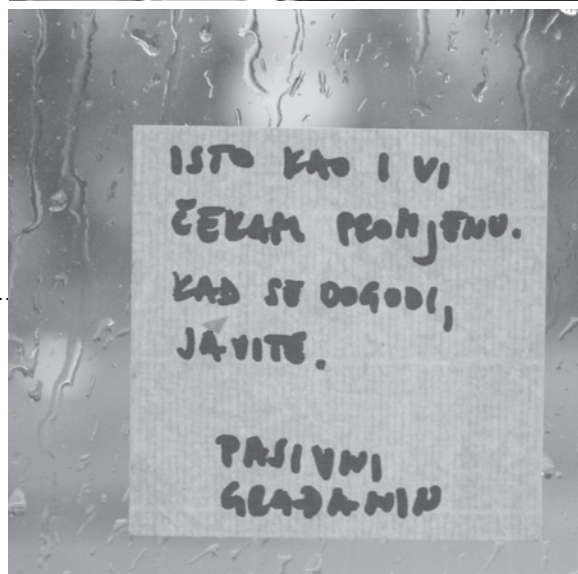 ISTO KAO I VI
ČEKAM PROMJENU.
KAD SE DOGODI,
JAVITE.
PASIVNI
GRAĐANIN